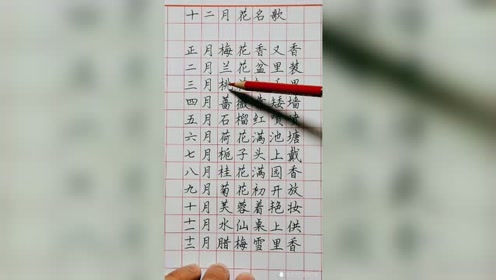 十二月花名歌
正月梅花香又香
二月兰花盆里装
三月桃 里
四月蔷薇 矮墙
五月石榴红
六月荷花满池塘
七月栀子头上戴
八月桂花满园香
九月菊花初开放
十月芙蓉着艳妆
十一月水仙桌上供
十二月腊梅雪里香